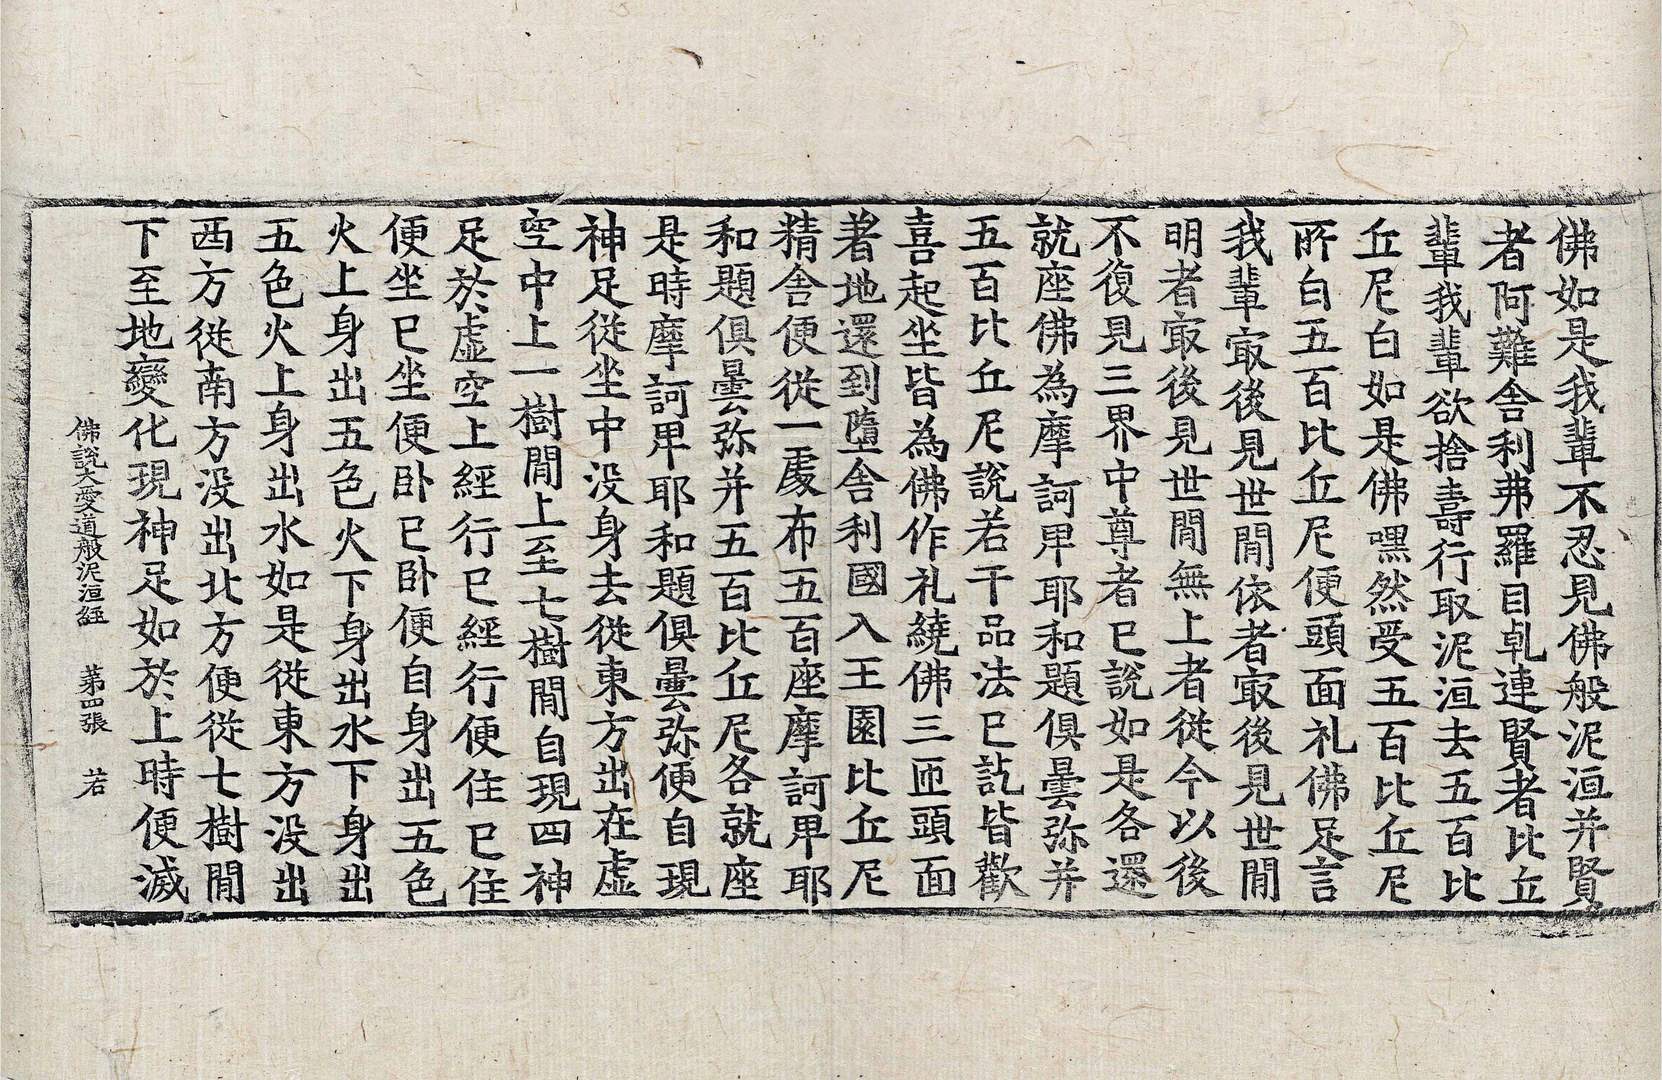 佛如是我輩不忍見佛般泥洹并賢
者阿難舍利弗羅目乹連賢者比丘
輩我輩欲捨壽行取泥洹去五百比
丘尼白如是佛嘿然受五百比丘尼
所白五百比丘尼便頭面礼佛足言
我輩㝡後見世閒依者㝡後見世閒
明者㝡後見世閒無上者從今以後
不復見三界中尊者已說如是各還
就座佛為摩訶卑耶和題俱曇弥并
五百比丘尼說若干品法已訖皆歡
喜起坐皆為佛作礼繞佛三匝頭面
著地還到墮舍利國入王園比丘尼
精舍便從一處布五百座摩訶卑耶
和題俱曇弥并五百比丘尼各就座
是時摩訶卑耶和題俱曇弥便自現
神足從坐中没身去從東方出在虛
空中上一樹閒上至七樹閒自現四神
足於虛空上經行已經行便住已住
便坐已坐便卧已卧便自身出五色
火上身出五色火下身出水下身出
五色火上身出水如是從東方没出
西方從南方没出北方便從七樹閒
下至地變化現神足如於上時便滅
佛說大愛道般泥洹經 第四張 若